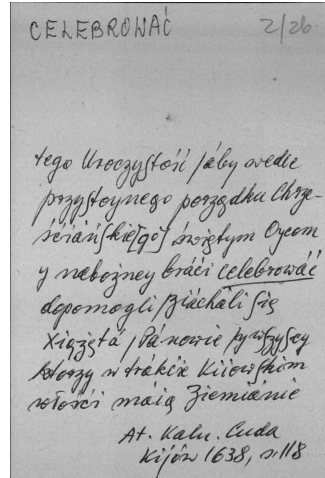 CELEBROWAĆ 2/26
tego Uroczystość / áby wedle
przystoynego porządku Chrze-
śćiáńskie[go] świętym Oycom
y nabożney bráći celebrowáć
dopomogli / ziácháli się
Xiążętá / Pánowie
ktorzy w trákćie Kijowskim
włośći máią Ziemiánie
At. Kaln. Cuda
Kijów 1638, s. 118